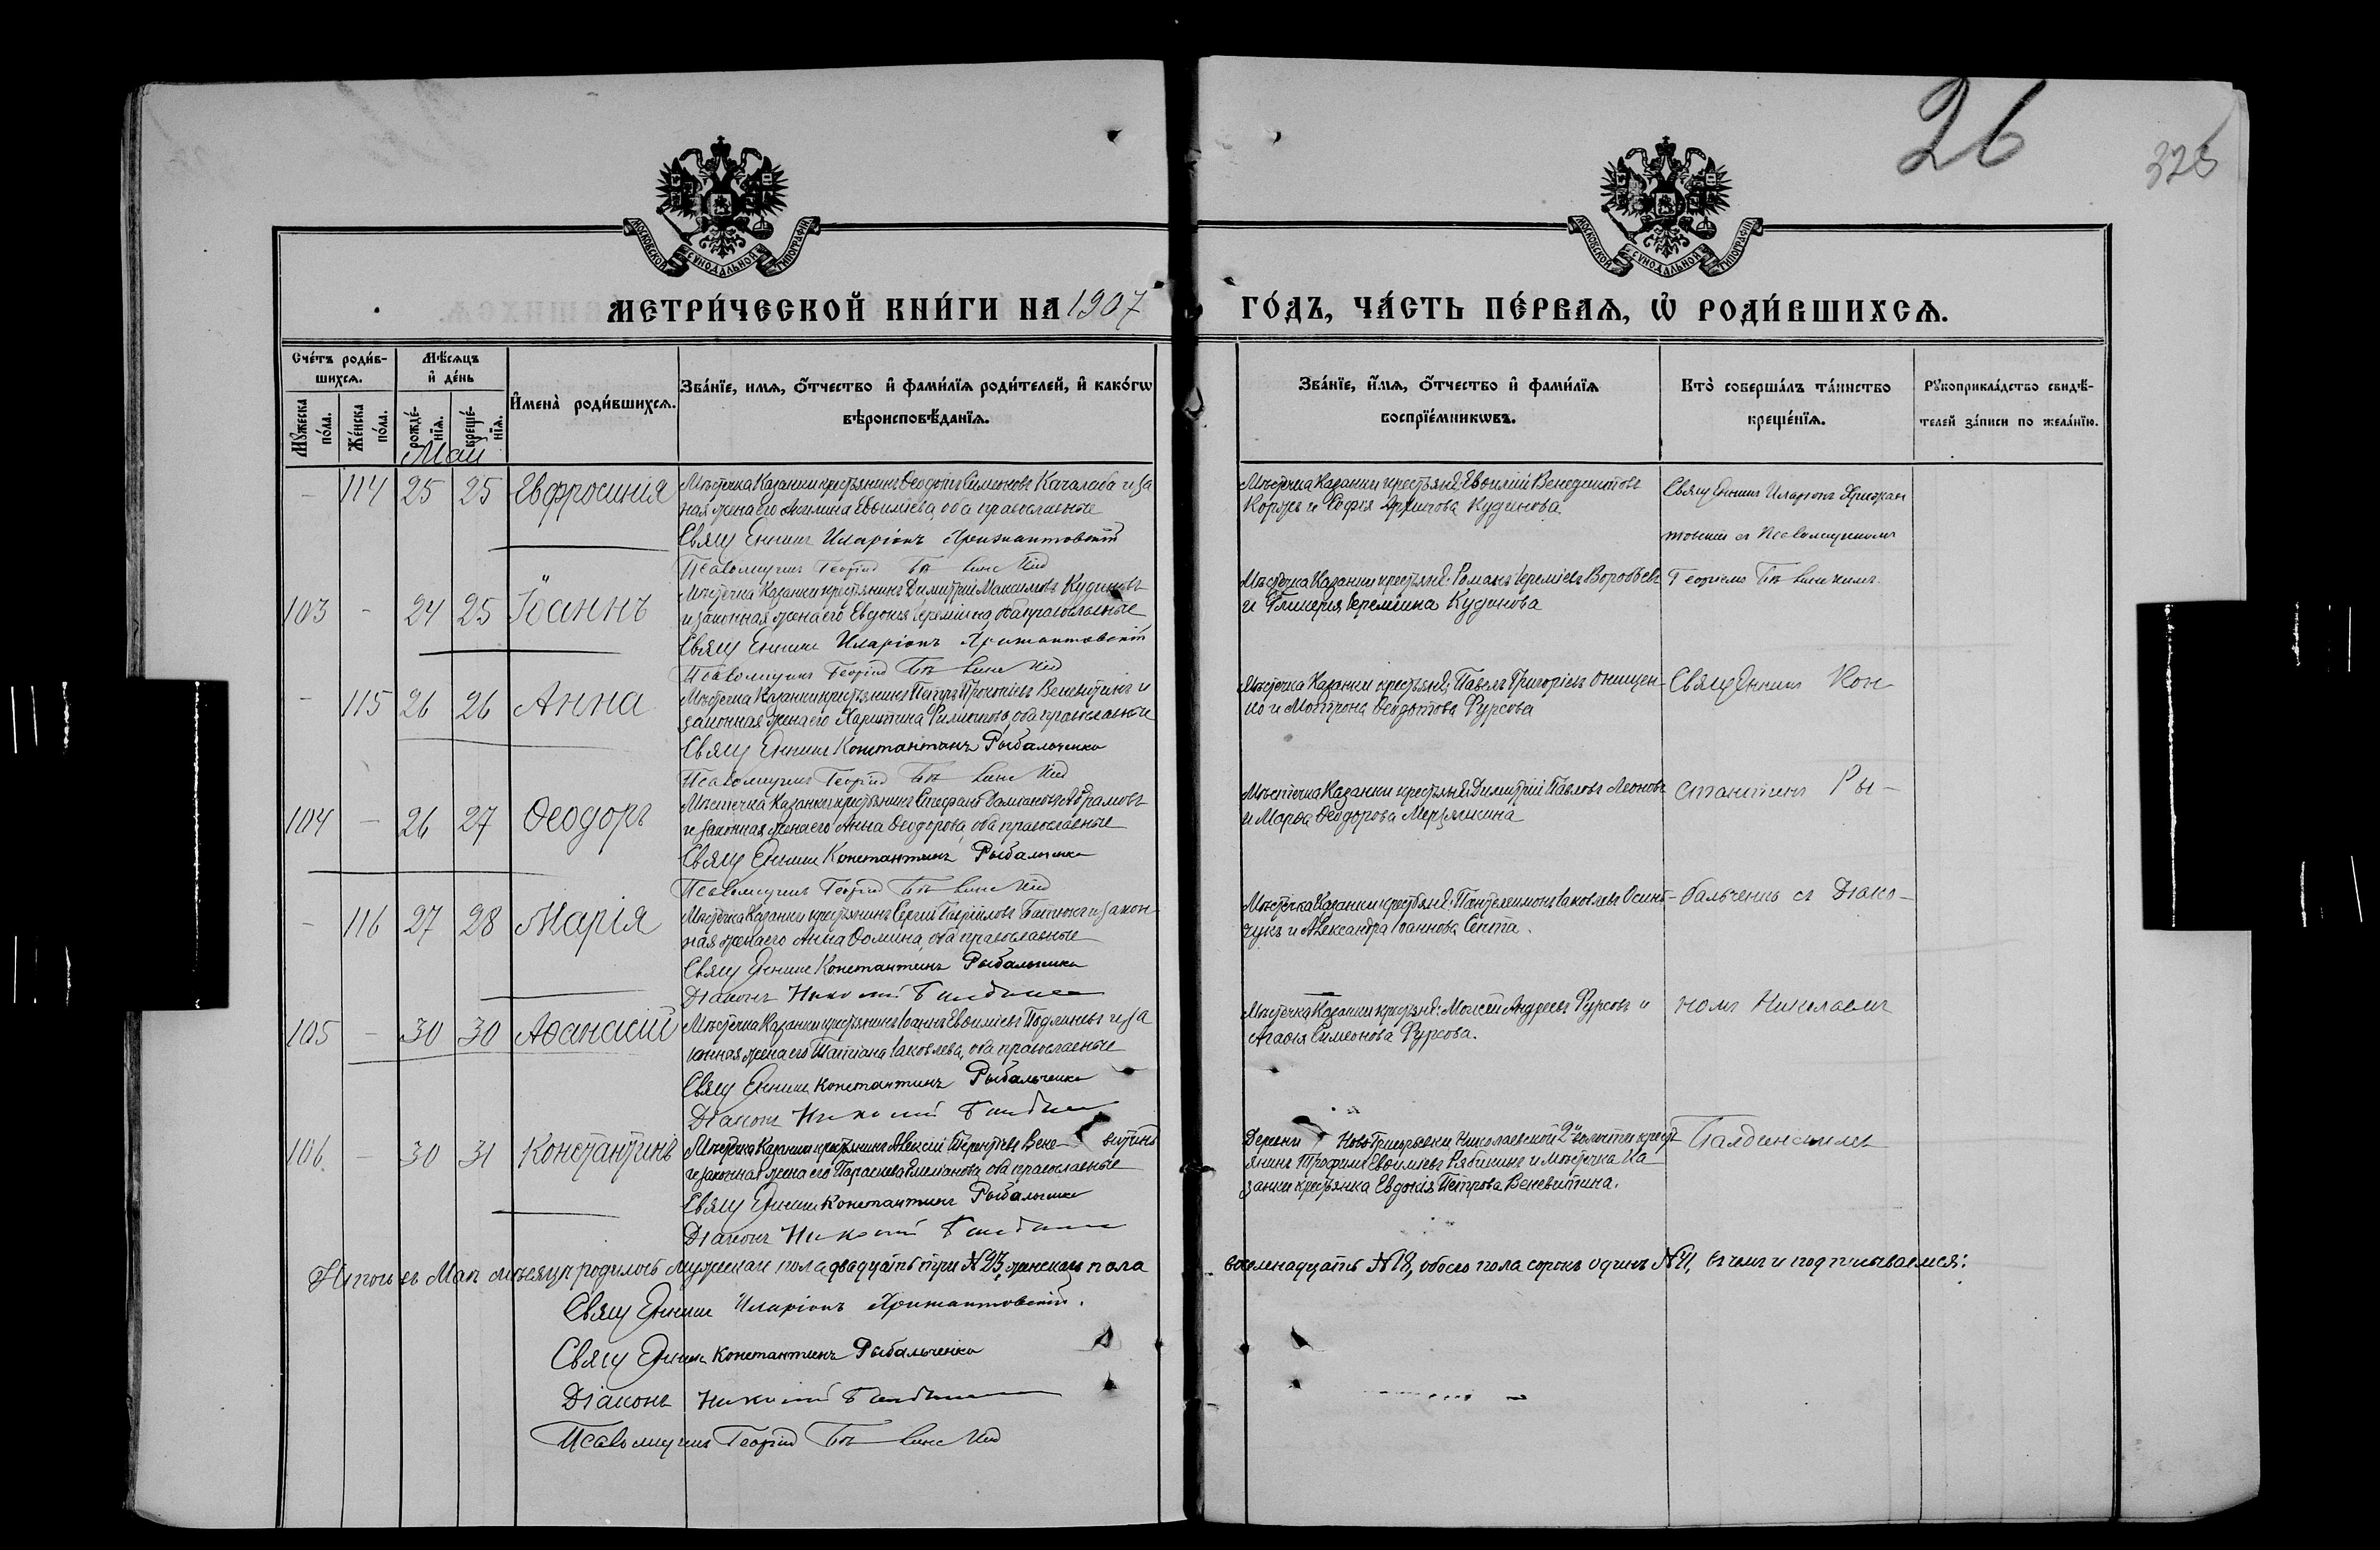 26
326
МОСКОВСКОЙ СУНОДАЛЬНОЙ ТИПОГРАФІИ
МОСКОВСКОЙ СУНОДАЛЬНОЙ ТИПОГРАФІИ
МЕТРИ́ЧЕСКОЙ КНИ́ГИ НА 1907
ГО́ДЪ, ЧА́СТЬ ПЕ́РВАѦ, Ѡ РОДИ́ВШИХСѦ.
Сче́тъ роди́в-
шихсѧ.
Мꙋ́жеска по́ла.
Же́нска по́ла.
Мѣ́сѧцъ
и҆ де́нь
рожде́-
нїѧ.
креще́-
нїѧ.
И҆мена̀ роди́вшихсѧ.
Зва́нїе, имѧ, ѻ҆́тчество и҆ фами́лїѧ роди́телей, и҆ како́гѡ
вѣроисповѣ́данїѧ.
Зва́нїе, и҆́мѧ, ѻ҆́тчество и҆ фами́лїѧ
воспрїе́мникѡвъ.
Кто̀ соверша́лъ та́инство
креще́нїѧ.
Рꙋкоприкла́дство свидѣ́-
телей за́писи по жела́нїю.
Май
– 114 25 25 Евфросинія
Мѣстечка Казанки крестьянинъ Ѳеодотъ Симеоновъ Качалаба и за
ная жена его Акилина Евѳиміева, оба православные
Свящ Енникъ Иларіонъ Хрижантовскій
Псаломщикъ Георгій
Мѣстечка Казанки крестьяне: Евѳимій Венедиктовъ
Коржъ и Софія Архипова Кудинова.
Свящ Енникъ Иларіонъ Хрижан
товскій съ Псаломщикомъ
103 – 24 25 Іоаннъ
Мѣстечка Казанки крестьянинъ Димитрій Максимовъ Кудиновъ
и законная жена его Евдокія Іереміина, оба православные
Свящ Енникъ Иларіонъ Хрижантовскій
Псаломщикъ Георгій
Мѣстечка Казанки крестьяне: Романъ Іереміевъ Воробьевъ
и Гликерія Іереміина Кудинова
Георгіемъ
– 115 26 26 Анна
Мѣстечка Казанки крестьянинъ Петръ Прокопіевъ Веневитинъ и
законная жена его Харитина Филиппова, оба православные
Свящ Енникъ Константинъ Рыбальченко
Псаломщикъ Георгій
Мѣстечка Казанки крестьяне: Павелъ Григоріевъ Онищен-
ко и Мотрона Ѳеодотова Фурсова
Свящ Енникъ Кон-
104 – 26 27 Ѳеодоръ
Мѣстечка Казанки крестьянинъ Стефанъ Даміановъ Абрамовъ
и законная жена его Анна Ѳеодорова, оба православные
Свящ Енникъ Константинъ Рыбальченко
Псаломщикъ Георгій
Мѣстечка Казанки крестьяне: Димитрій Павловъ Леоновъ
и Марѳа Ѳеодорова Мерзликина
стантинъ Ры-
– 116 27 28 Марія
Мѣстечка Казанки крестьянинъ Сергій Гавріиловъ и закон-
ная жена его Анна Ѳомина, оба православные
Свящ Енникъ Константинъ Рыбальченко
Діаконъ Николай
Мѣстечка Казанки крестьяне: Пантелеимонъ Іаковлевъ Осип-
чукъ и Александра Іоаннова
бальченко съ Діако-
105 – 30 30 Аѳанасій
Мѣстечка Казанки крестьянинъ Іоаннъ Евѳиміевъ и за
конная жена его Татіана Іаковлева, оба православные
Свящ Енникъ Константинъ Рыбальченко
Діаконъ Николай
Мѣстечка Казанки крестьяне: Моисей Андреевъ Фурсовъ и
Агафія Симеонова Фурсова.
номъ Николаемъ
106 – 30 31 Константинъ
Мѣстечка Казанки крестьянинъ Алексій Терентіевъ Вене-витинъ
и законная жена его Параскева Емеліанова, оба православные
Свящ Енникъ Константинъ Рыбальченко
Діаконъ Николай
Деревни Ново-Григорьевки Николаевской 2й волости крест
янинъ Трофимъ Евѳиміевъ Рябикинъ и мѣстечка Ка
занки крестьянка Евдокія Петрова Веневитина.
Итого въ Маѣ мѣсяцѣ родилось мужескаго пола двадцать три №23, женскаго пола
восемнадцать №18, обоего пола сорокъ одинъ №41, въ чемъ и подписываемся:
Свящ Енникъ Иларіонъ Хрижантовскій.
Свящ Енникъ Константинъ Рыбальченко
Діаконъ Николай
Псаломщикъ Георгій